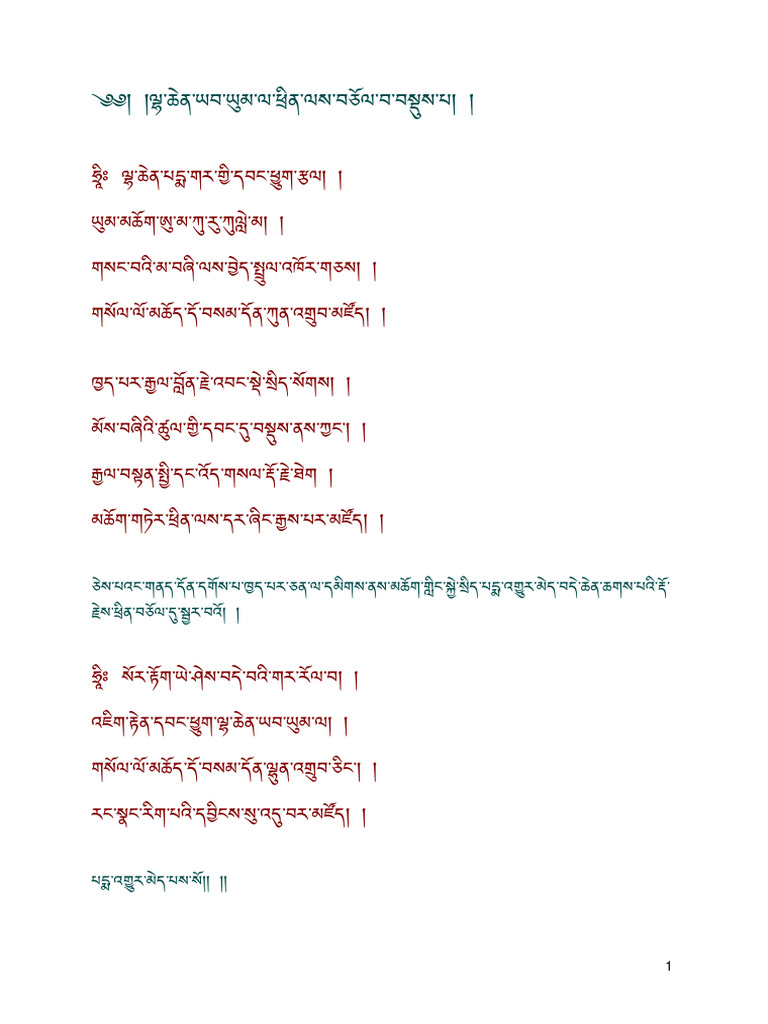 ༄༅། །ལྷ་ཆེན་ཡབ་ཡུམ་ལ་ཕྲིན་ལས་བཅོལ་བ་བསྡུས་པ། །
ཧྲཱིཿ ལྷ་ཆེན་པདྨ་གར་གྱི་དབང་ཕྱུག་རྩལ། །
ཡུམ་མཆོག་ཨུ་མ་ཀུ་རུ་ཀུལླེ་མ། །
གསང་བའི་མ་བཞི་ལས་བྱེད་སྤྲུལ་འཁོར་གཅས། །
གསོལ་ལོ་མཆོད་དོ་བསམ་དོན་ཀུན་འགྲུབ་མཛོད། །
ཁྱད་པར་རྒྱལ་བློན་རྗེ་འབང་སྡེ་སྲིད་སོགས། །
མོས་བཞིའི་ཚུལ་གྱི་དབང་དུ་བསྡུས་ནས་ཀྱང་། །
རྒྱལ་བསྟན་སྤྱི་དང་འོད་གསལ་རྡོ་རྗེ་ཐེག །
མཆོག་གཏེར་ཕྲིན་ལས་དར་ཞིང་རྒྱས་པར་མཛོད། །
ཅེས་པའང་གནད་དོན་དགོས་པ་ཁྱད་པར་ཅན་ལ་དམིགས་ནས་མཆོག་གླིང་སྐྱེ་སྲིད་པདྨ་འགྱུར་མེད་བདེ་ཆེན་ཆགས་པའི་རྡོ་
རྗེས་ཕྲིན་བཅོལ་དུ་སྦྱར་བའོ། །
ཧྲཱིཿ སོར་རྟོག་ཡེ་ཤེས་བདེ་བའི་གར་རོལ་བ། །
འཇིག་རྟེན་དབང་ཕྱུག་ལྷ་ཆེན་ཡབ་ཡུམ་ལ། །
གསོལ་ལོ་མཆོད་དོ་བསམ་དོན་ལྷུན་འགྲུབ་ཅིང་། །
རང་སྣང་རིག་པའི་དབྱིངས་སུ་འདུ་བར་མཛོད། །
པདྨ་འགྱུར་མེད་པས་སོ།། །།
1